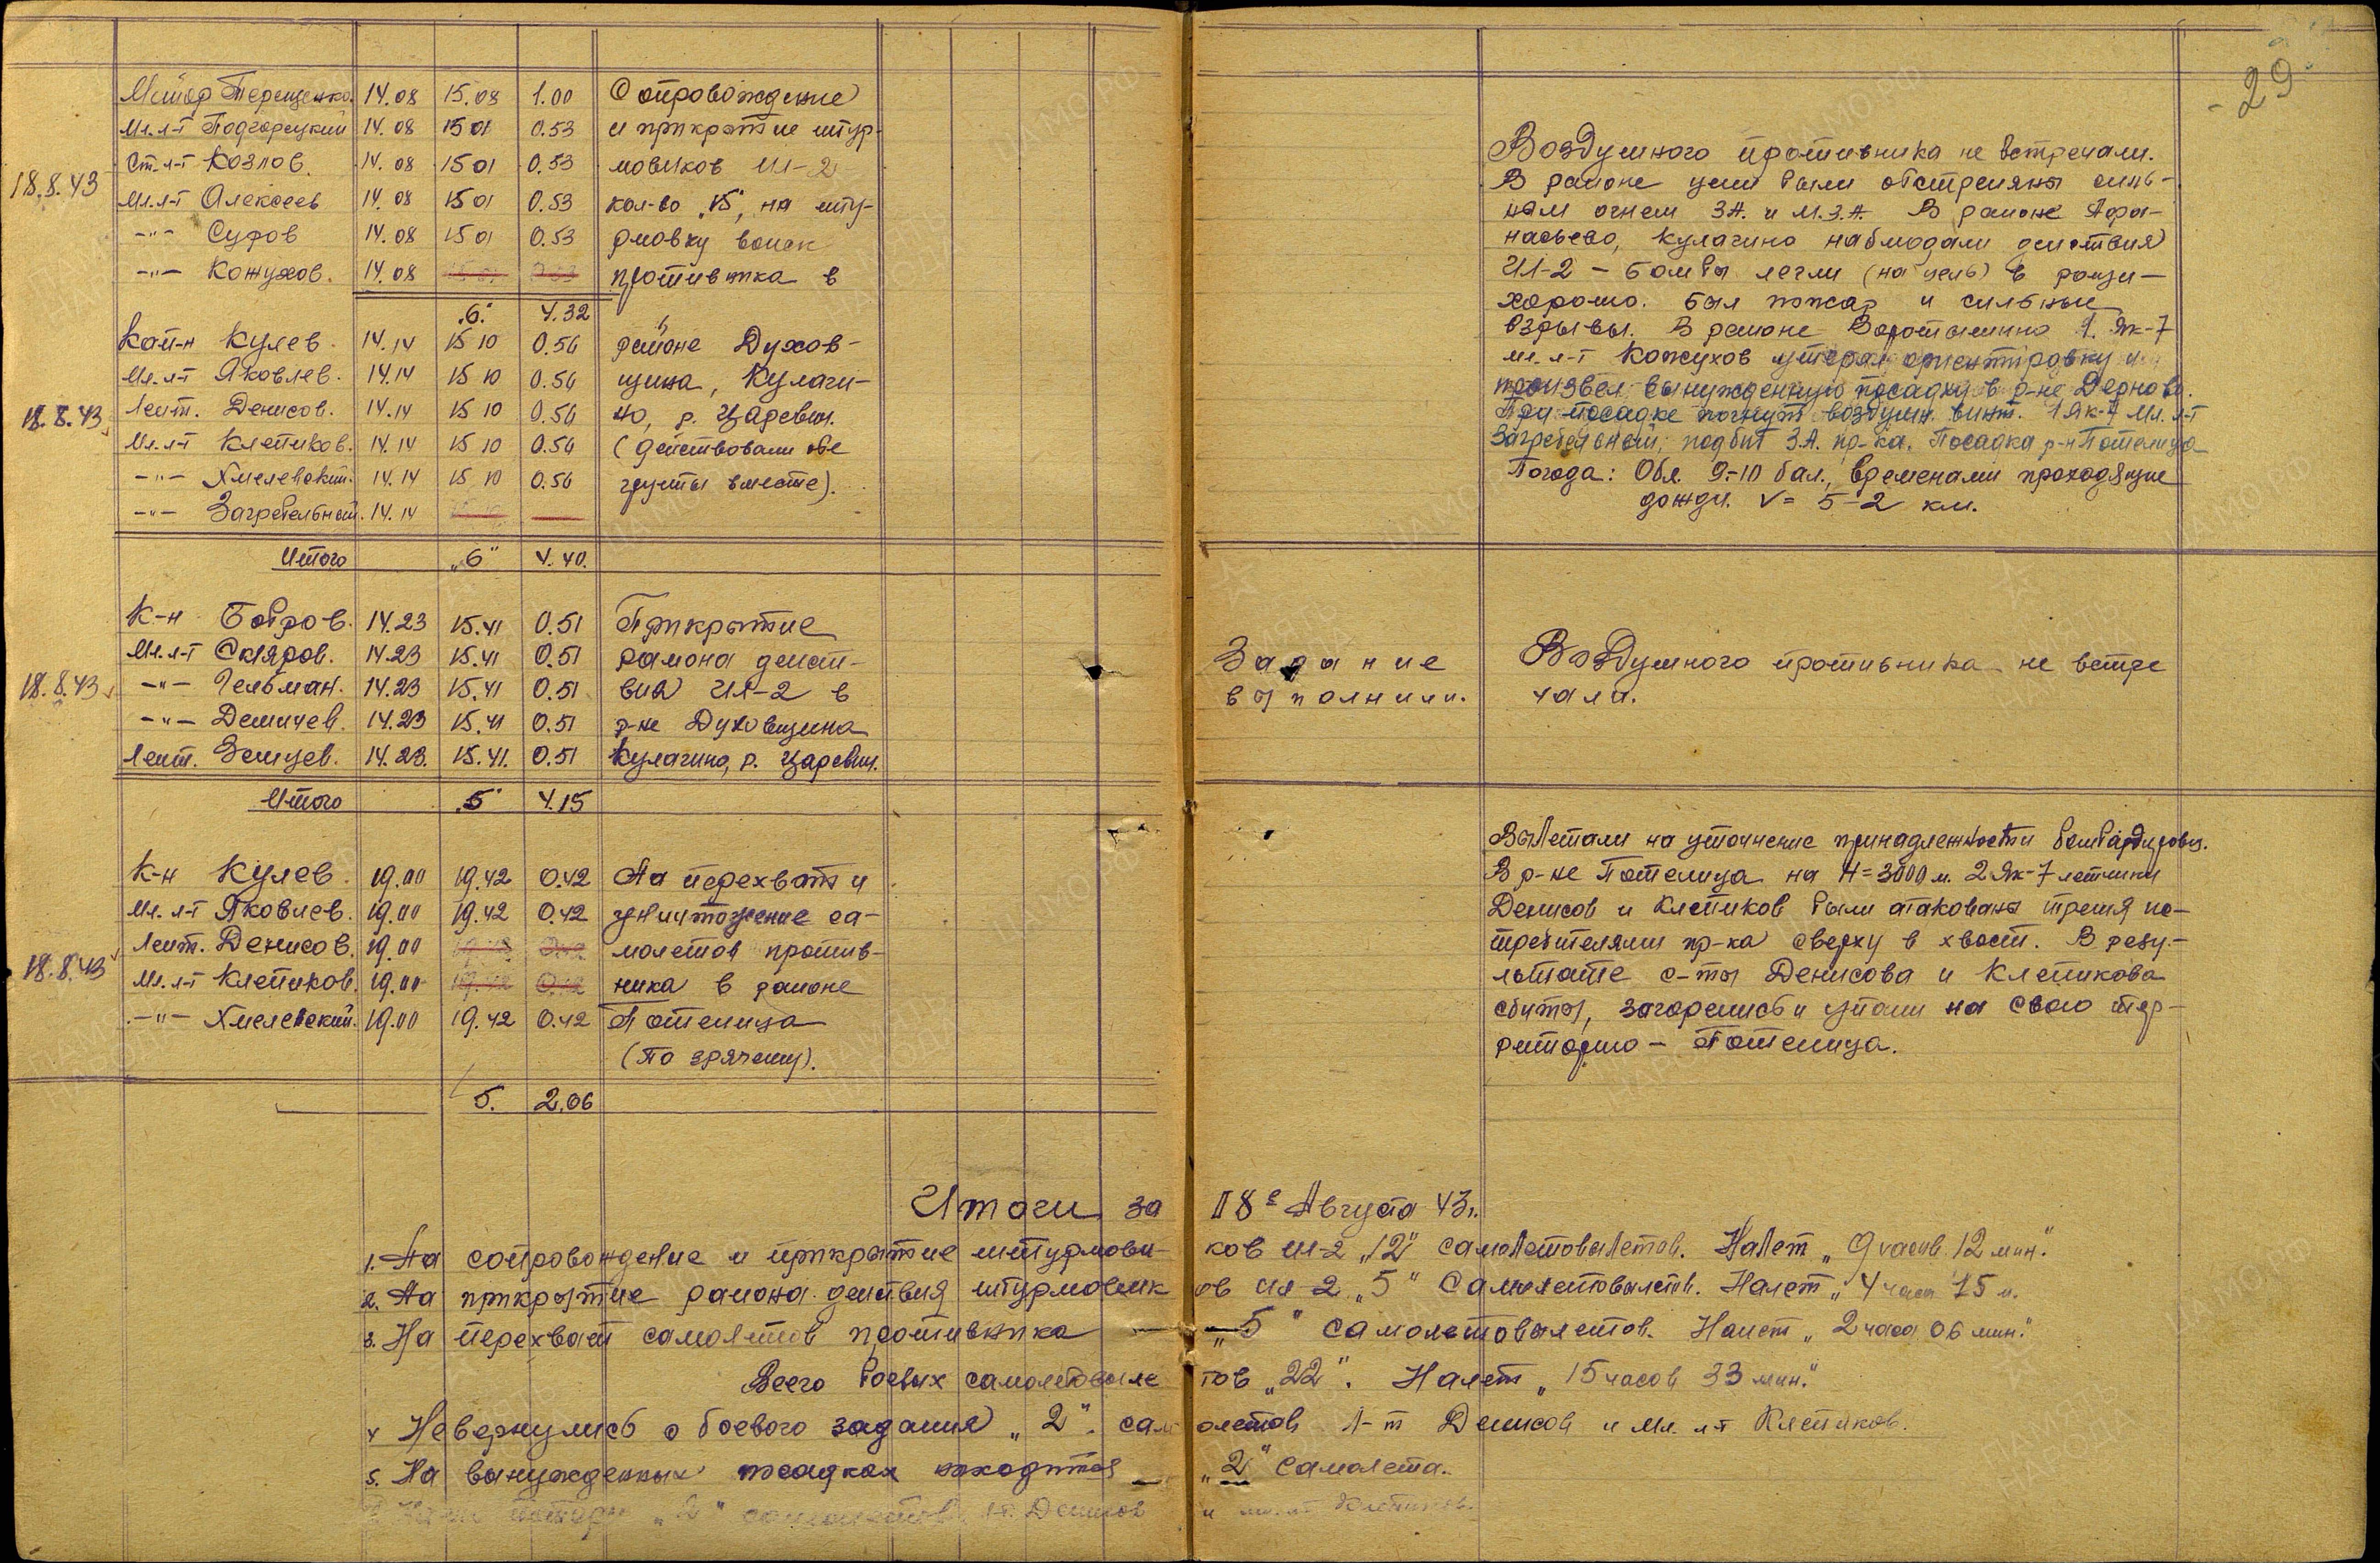 - 29
18.8.43
Майор Терещенко. 14.08 15.08 1.00 Сопровождение
Мл.л-т Подгорецкий 14.08 15 01 0.53 и прикрытие штур-
Ст.л-т Козлов. 14.08 15 01 0.53 мовиков Ил-2
Мл.л-т Алексеев 14.08 15 01 0.53 кол-во "15", на шту-
-"- Суфов 14.08 15 01 0.53 рмовку войск
-"- Кожухов. 14.08 противника в
"6" 4.32
18.8.43
Кап-н Кулев. 14.14 15 10 0.56 районе Духов-
Мл.л-т Яковлев. 14.14 15 10 0.56 щина, Кулаги-
Лейт. Денисов. 14.14 15 10 0.56 но, р. Царевич.
Мл.л-т Клепиков. 14.14 15 10 0.56 (действовали обе
-"- Хмелевский. 14.14 15 10 0.56 группы вместе).
-"- Загребельный. 14.14
Итого "6" 4.40.
Воздушного противника не встречали.
В районе цели были обстреляны силь-
ным огнем ЗА. и М.З.А. В районе Афа-
насьево, Кулагино наблюдали действия
Ил-2 - бомбы легли (на цель) в рощи -
хорошо. Был пожар и сильные
взрывы. В районе Воротышино 1. Як-7
мл. л-т Кожухов утерял ориентировку и
произвел вынужденную посадку в р-не Верново.
При посадке погнут воздушн. винт. 1 Як-7 мл. л-т
Загребельный; подбит З.А. пр-ка. Посадка р-н Потелица
Погода: Обл. 9-10 бал., временами проходящие
дожди. V = 5-2 км.
18.8.43
К-н Бобров. 14.23 15.41 0.51 Прикрытие
Мл.л-т Скляров. 14.23 15.41 0.51 района дейст-
-"- Гельман. 14.23 15.41 0.51 вия Ил-2 в
-"- Демичев. 14.23 15.41 0.51 р-не Духовщина
Лейт. Земцев. 14.23. 15.41. 0.51 Кулагино, р. Царевич.
Итого "5" 4.15
Задание
выполнили.
Воздушного противника не встре
чали.
18.8.43
К-н Кулев. 19.00 19.42 0.42 На перехват и
Мл. л-т Яковлев. 19.00 19.42 0.42 уничтожение са-
Лейт. Денисов. 19.00 19.42 0.42 молетов против-
Мл. л-т Клепиков. 19.00 19.42 0.42 ника в районе
-"- Хмелевский. 19.00 19.42 0.42 Потелица
(По зрячему).
5. 2.06
Вылетали на уточнение принадлежности бомбардировщ.
В р-не Потелица на H=3000 м. 2 Як-7 летчики
Денисов и Клепиков были атакованы тремя ис-
требителями пр-ка сверху в хвост. В резу-
льтате с-ты Денисова и Клепикова
сбиты, загорелись и упали на свою тер-
риторию - Потелица.
Итоги за 18е Августа 43г.
1. На сопровождение и прикрытие штурмовиков Ил-2 "12" самолетовылетов. Налет "9 часов 12 мин."
2. На прикрытие района действия штурмовиков Ил-2 "5" самолетовылетов. Налет "4 часа 15 м.
3. На перехват самолетов противника - "5" самолетовылетов. Налет "2 часа 06 мин."
Всего боевых самолетовылетов "22". Налет "15 часов 33 мин."
4 Не вернулись с боевого задания "2" самолетов л-т Денисов и мл. л-т Клепиков.
5. На вынужденных посадках находится - "2" самолета.
потери "2" самолетов л-т. Денисов и мл. л-т Клепиков.